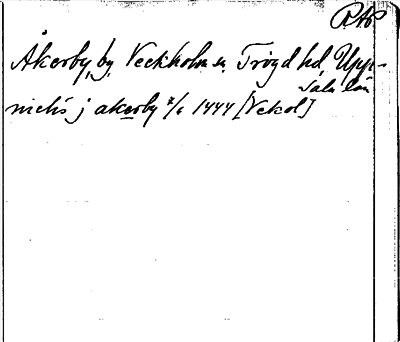 RAP
Åkerby, by, Veckholm sn. Trögd hd, Upp-
sala län
niclis j akerby 7/6 1444 [Vekol]